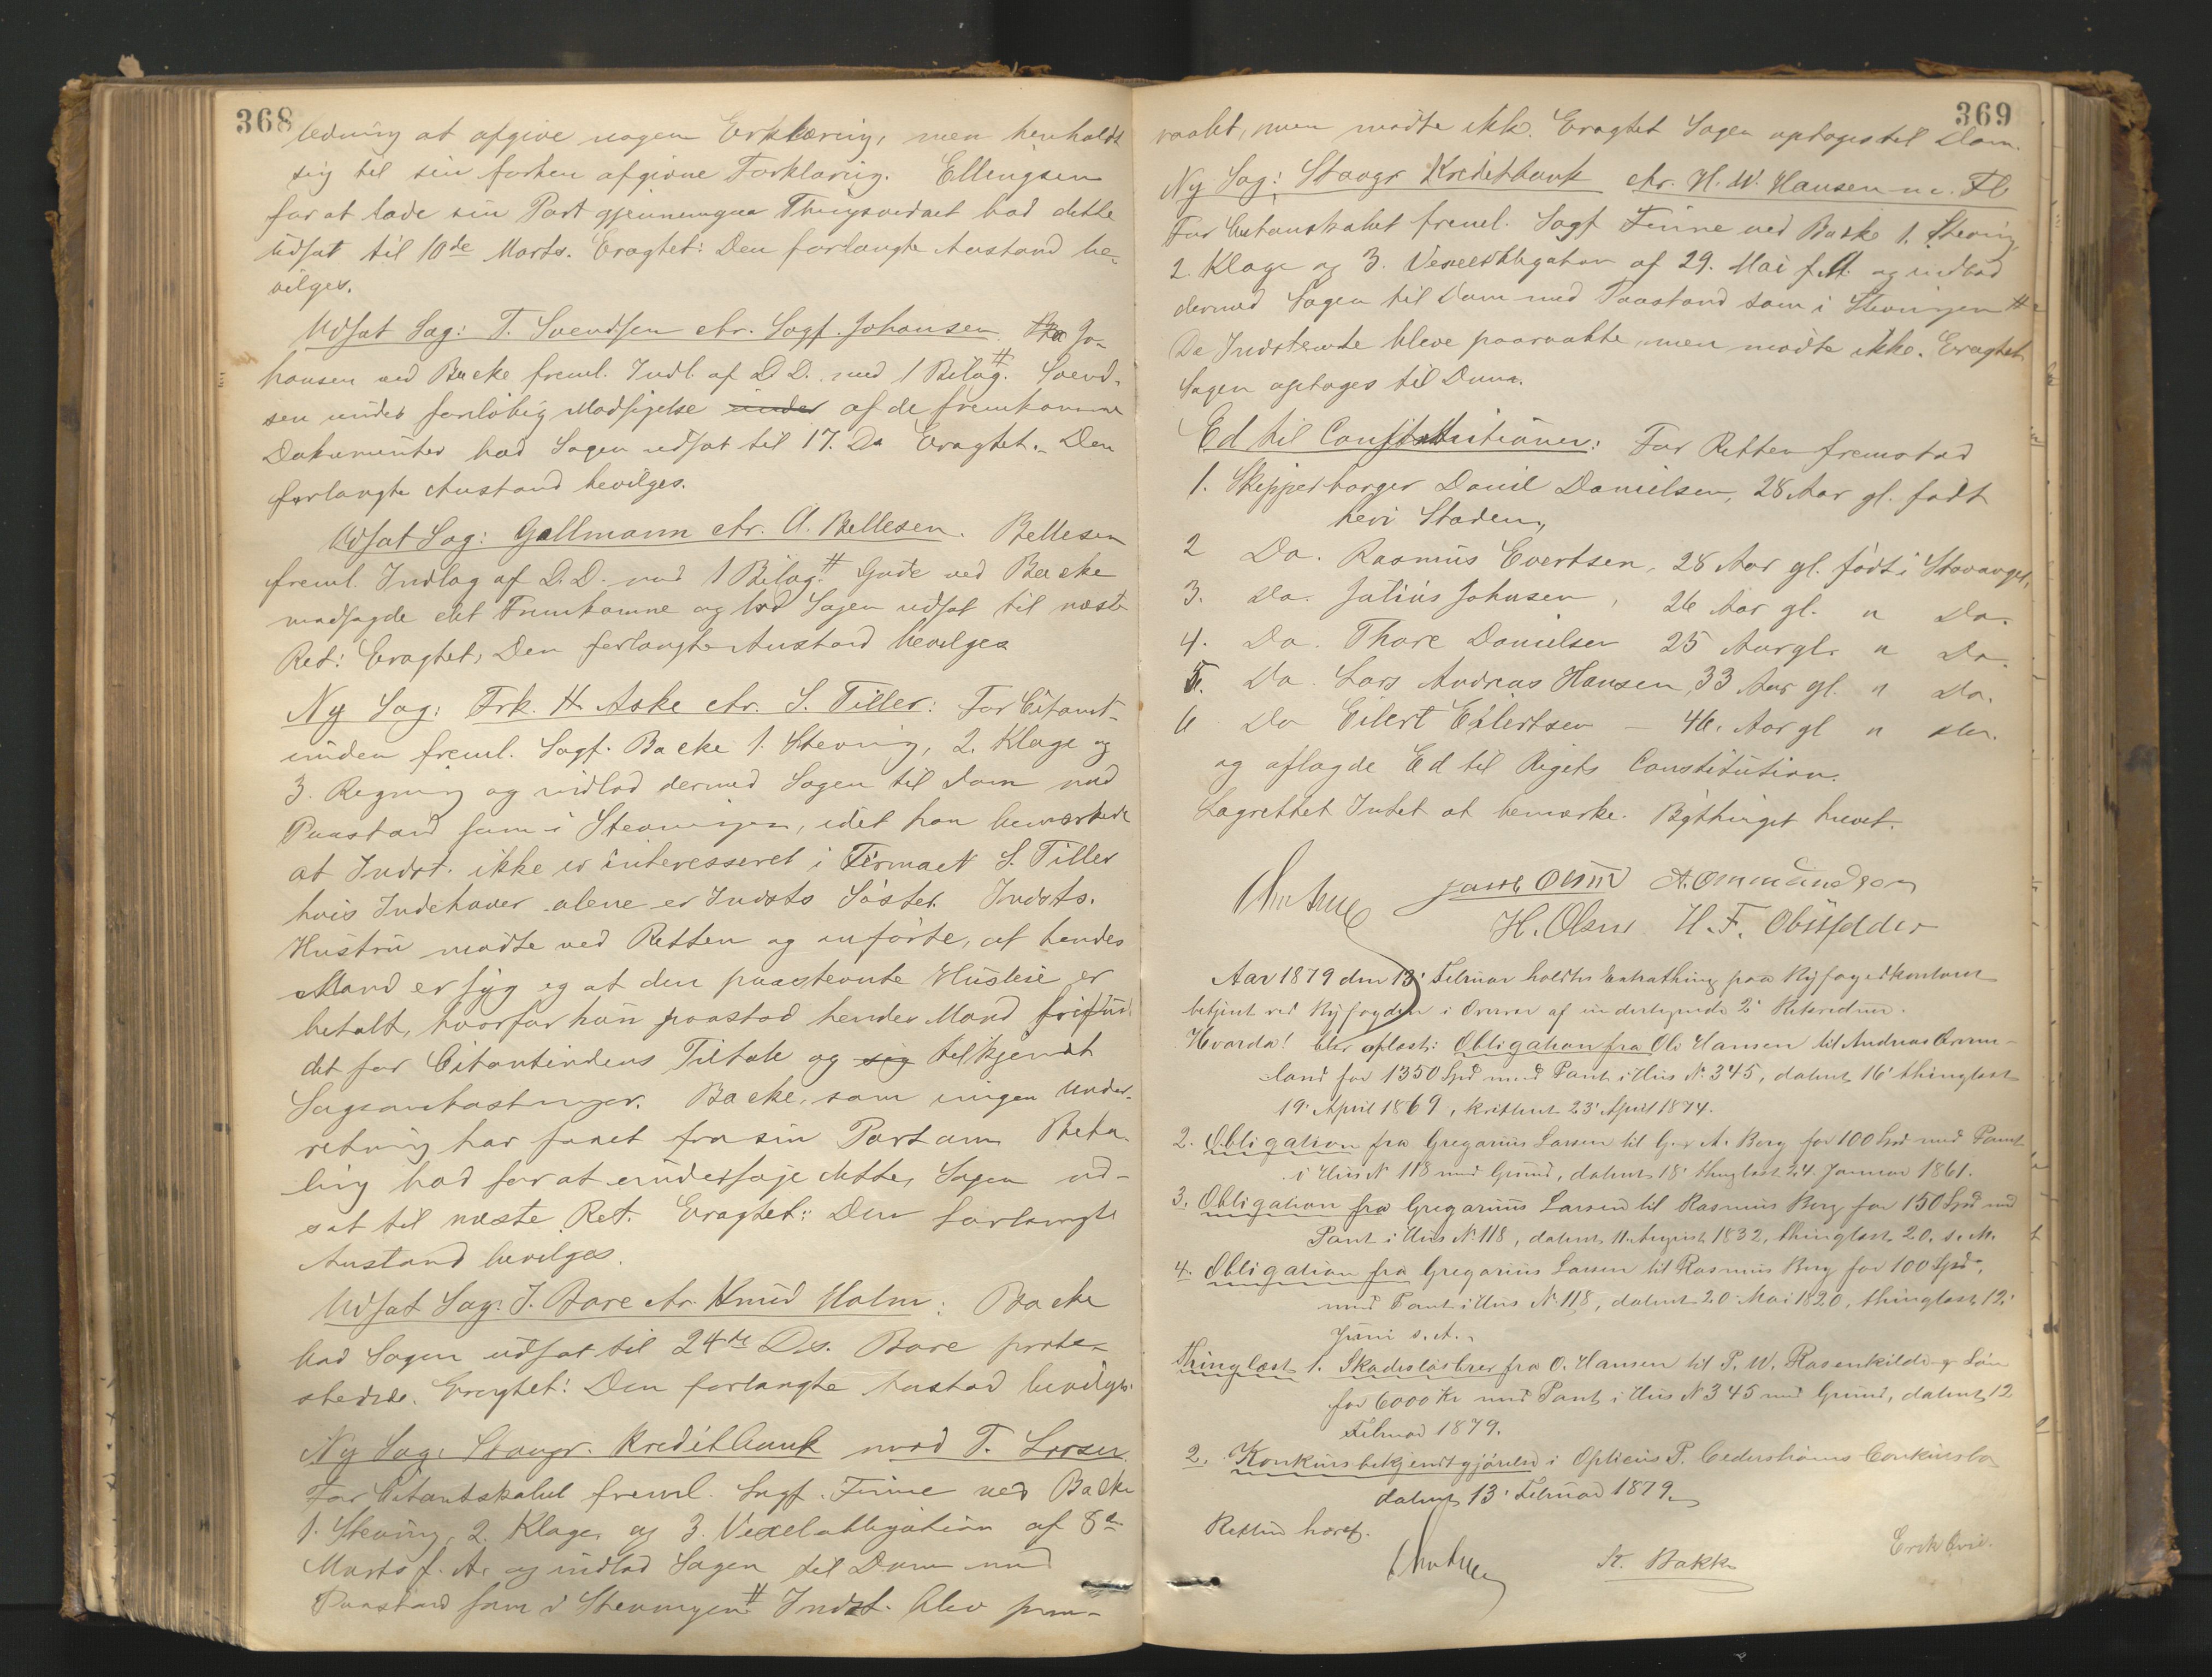 368
ledning at afgive nogen Erklæring, men henholdt
sig til sin forhen afgivne Forklaring. Ellingsen
for at lade sin Part gjennemgaa Thingsvidnet bad dette
udsat til 10de Marts. Eragtet: Den forlangte Anstand be-
vilges.
Udsat Sag: T. Svendsen ctr. Sagf. Johansen. Jo-
hansen ved Backe freml. Indl. af D. D. med 1 Bilag # Svend-
sen under foreløbig Modsigelse under af de fremkomne
Dokumenter bad Sagen udsat til 17. Ds Eragtet: Den
forlangte Anstand bevilges.
Udsat Sag: Gallmann ctr. A. Bellesen. Bellesen
freml. Indlæg af D.D. med 1 Bilag. # Gude ved Backe
modsagde det Fremkomne og bad Sagen udsat til næste
Ret: Eragtet, Den forlangte Anstand bevilges
Ny Sag: Frk. H. Aske ctr. S. Tiller: For Citant-
inden freml. Sagf. Backe 1. Stevning, 2. Klage og
3. Regning og indlod dermed Sagen til Dom med
Paastand som i Stevningen, idet han bemærkede
at Indst. ikke er interesseret i Firmaet S. Tiller
hvis Indehaver alene er Indsts Søster. Indsts.
Hustru mødte ved Retten og anførte, at hendes
Mand er syg og at den paastevnte Husleie er
betalt, hvorfor hun paastod hendes Mand frifun-
det for Citantindens Tiltale og sig tilkjendt
Sagsomkostninger. Backe, som ingen Under-
retning har faaet fra sin Part om Beta-
ling bad for at undersøge dette, Sagen ud-
sat til næste Ret. Eragtet: Den forlangte
Anstand bevilges.
Udsat Sag: J. Bore ctr. Knud Holm: Backe
bad Sagen udsat til 24de Ds. Bore prote-
sterede. Eragtet: Den forlangte Anstand bevilges.
Ny Sag: Stavgr. Kreditbank mod T. Larsen.
For Citantskabet freml. Sagf. Finne ved Backe
1. Stevning, 2. Klage, og 3. Vexelobligation af 8de
Marts f. A. og indlod Sagen til Dom med
Paastand som i Stevningen # Indst. blev paa-
369
raabt, men mødte ikke. Eragtet Sagen optages til Dom.
Ny Sag: Stavgr Kreditbank ctr. H. W. Hansen m. Fl
For Citantskabet freml. Sagf Finne ved Backe 1. Stevning
2. Klage og 3. Vexelobligation af 29. Mai f. A. og indlod
dermed Sagen til Dom med Paastand som i Stevningen #
De Indstevnte bleve paaraabte, men mødte ikke. Eragtet
Sagen optages til Dom.
Ed til Constitutionen: For Retten fremstod
1. Skipperborger Daniel Danielsen, 28 Aar gl. født
her i Staden,
2 Do. Rasmus Evertsen, 28 Aar gl. født i Stavanger,
3. Do. Julius Johnsen, 26 Aar gl. " Do.
4. Do. Thore Danielsen 25 Aar gl. " Do.
5. Do. Lars Andreas Hansen, 33 Aar gl. " Do.
6 Do Eilert Eilertsen - 46. Aar gl " Do.
og aflagde Ed til Rigets Constitution.
Lagrettet Intet at bemærke. Bythinget hævet.
A. Ommundsen
H. Olsen H. F. Obstfelder
Aar 1879 den 13' Februar holdtes Extrathing paa Byfogedkontoret
betjent ved Byfogden i Overvær af undertegnede 2 Retsvidner.
Hvorda! blev aflæst: Obligation fra Ole Hansen til Andreas
land for 1350 Spd med Pant i Hus No 345, dateret 16' thinglæst
19' April 1869, kvitteret 23' April 1874.
2. Obligation fra Gregarius Larsen til G. A. Berg for 100 Spd med Pant
i Hus No 118 med Grund, dateret 18' thinglæst 24. Januar 1861.
3. Obligation fra Gregarius Larsen til Rasmus Berg for 150 Spd med
Pant i Hus No 118, dateret 11. August 1832, thinglæst 20. s. M.
4. Obligation fra Gregarius Larsen til Rasmus Berg for 100 Spd,
med Pant i Hus No 118, dateret 20 Mai 1820, thinglæst 12'
Juni s. A.
Thinglæst 1. Skadesløsbrev fra O. Hansen til P. W. Rosenkilde & Søn
for 6000 Kr med Pant i Hus No 345 med Grund, dateret 12
Februar 1879.
2. Konkursbekjendtgjørelse i Opticus P. Cederstrøms Conkursbo
dateret 13' Februar 1879.
Retten hævet.
K. Bakke